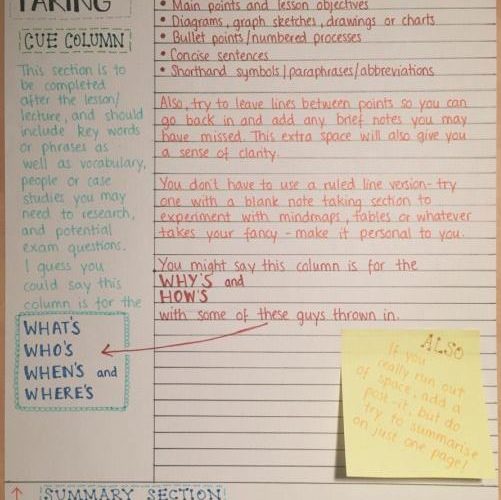 TAKING
CUE COLUMN
This section is to
be completed
after the lesson/
lecture, and should
include key words
or phrases as
well as vocabulary,
people or case
studies you may
need to research,
and potential
exam questions.
I guess you
could say this
column is for the
WHAT'S
WHO'S
WHEN'S and
WHERE'S
• Main points and lesson objectives
• Diagrams, graph sketches, drawings or charts
• Bullet points/numbered processes
• Concise sentences
• Shorthand symbols/paraphrases/abbreviations
Also, try to leave lines between points so you can
go back in and add any brief notes you may
have missed. This extra space will also give you
a sense of clarity.
You don't have to use a ruled line version- try
one with a blank note taking section to
experiment with mindmaps, tables or whatever
takes your fancy - make it personal to you.
You might say this column is for the
WHY'S and
HOW'S
with some of these guys thrown in.
ALSO
If you
really run out
of space, add a
post-it, but do
try to summarise
on just one page!
SUMMARY SECTION